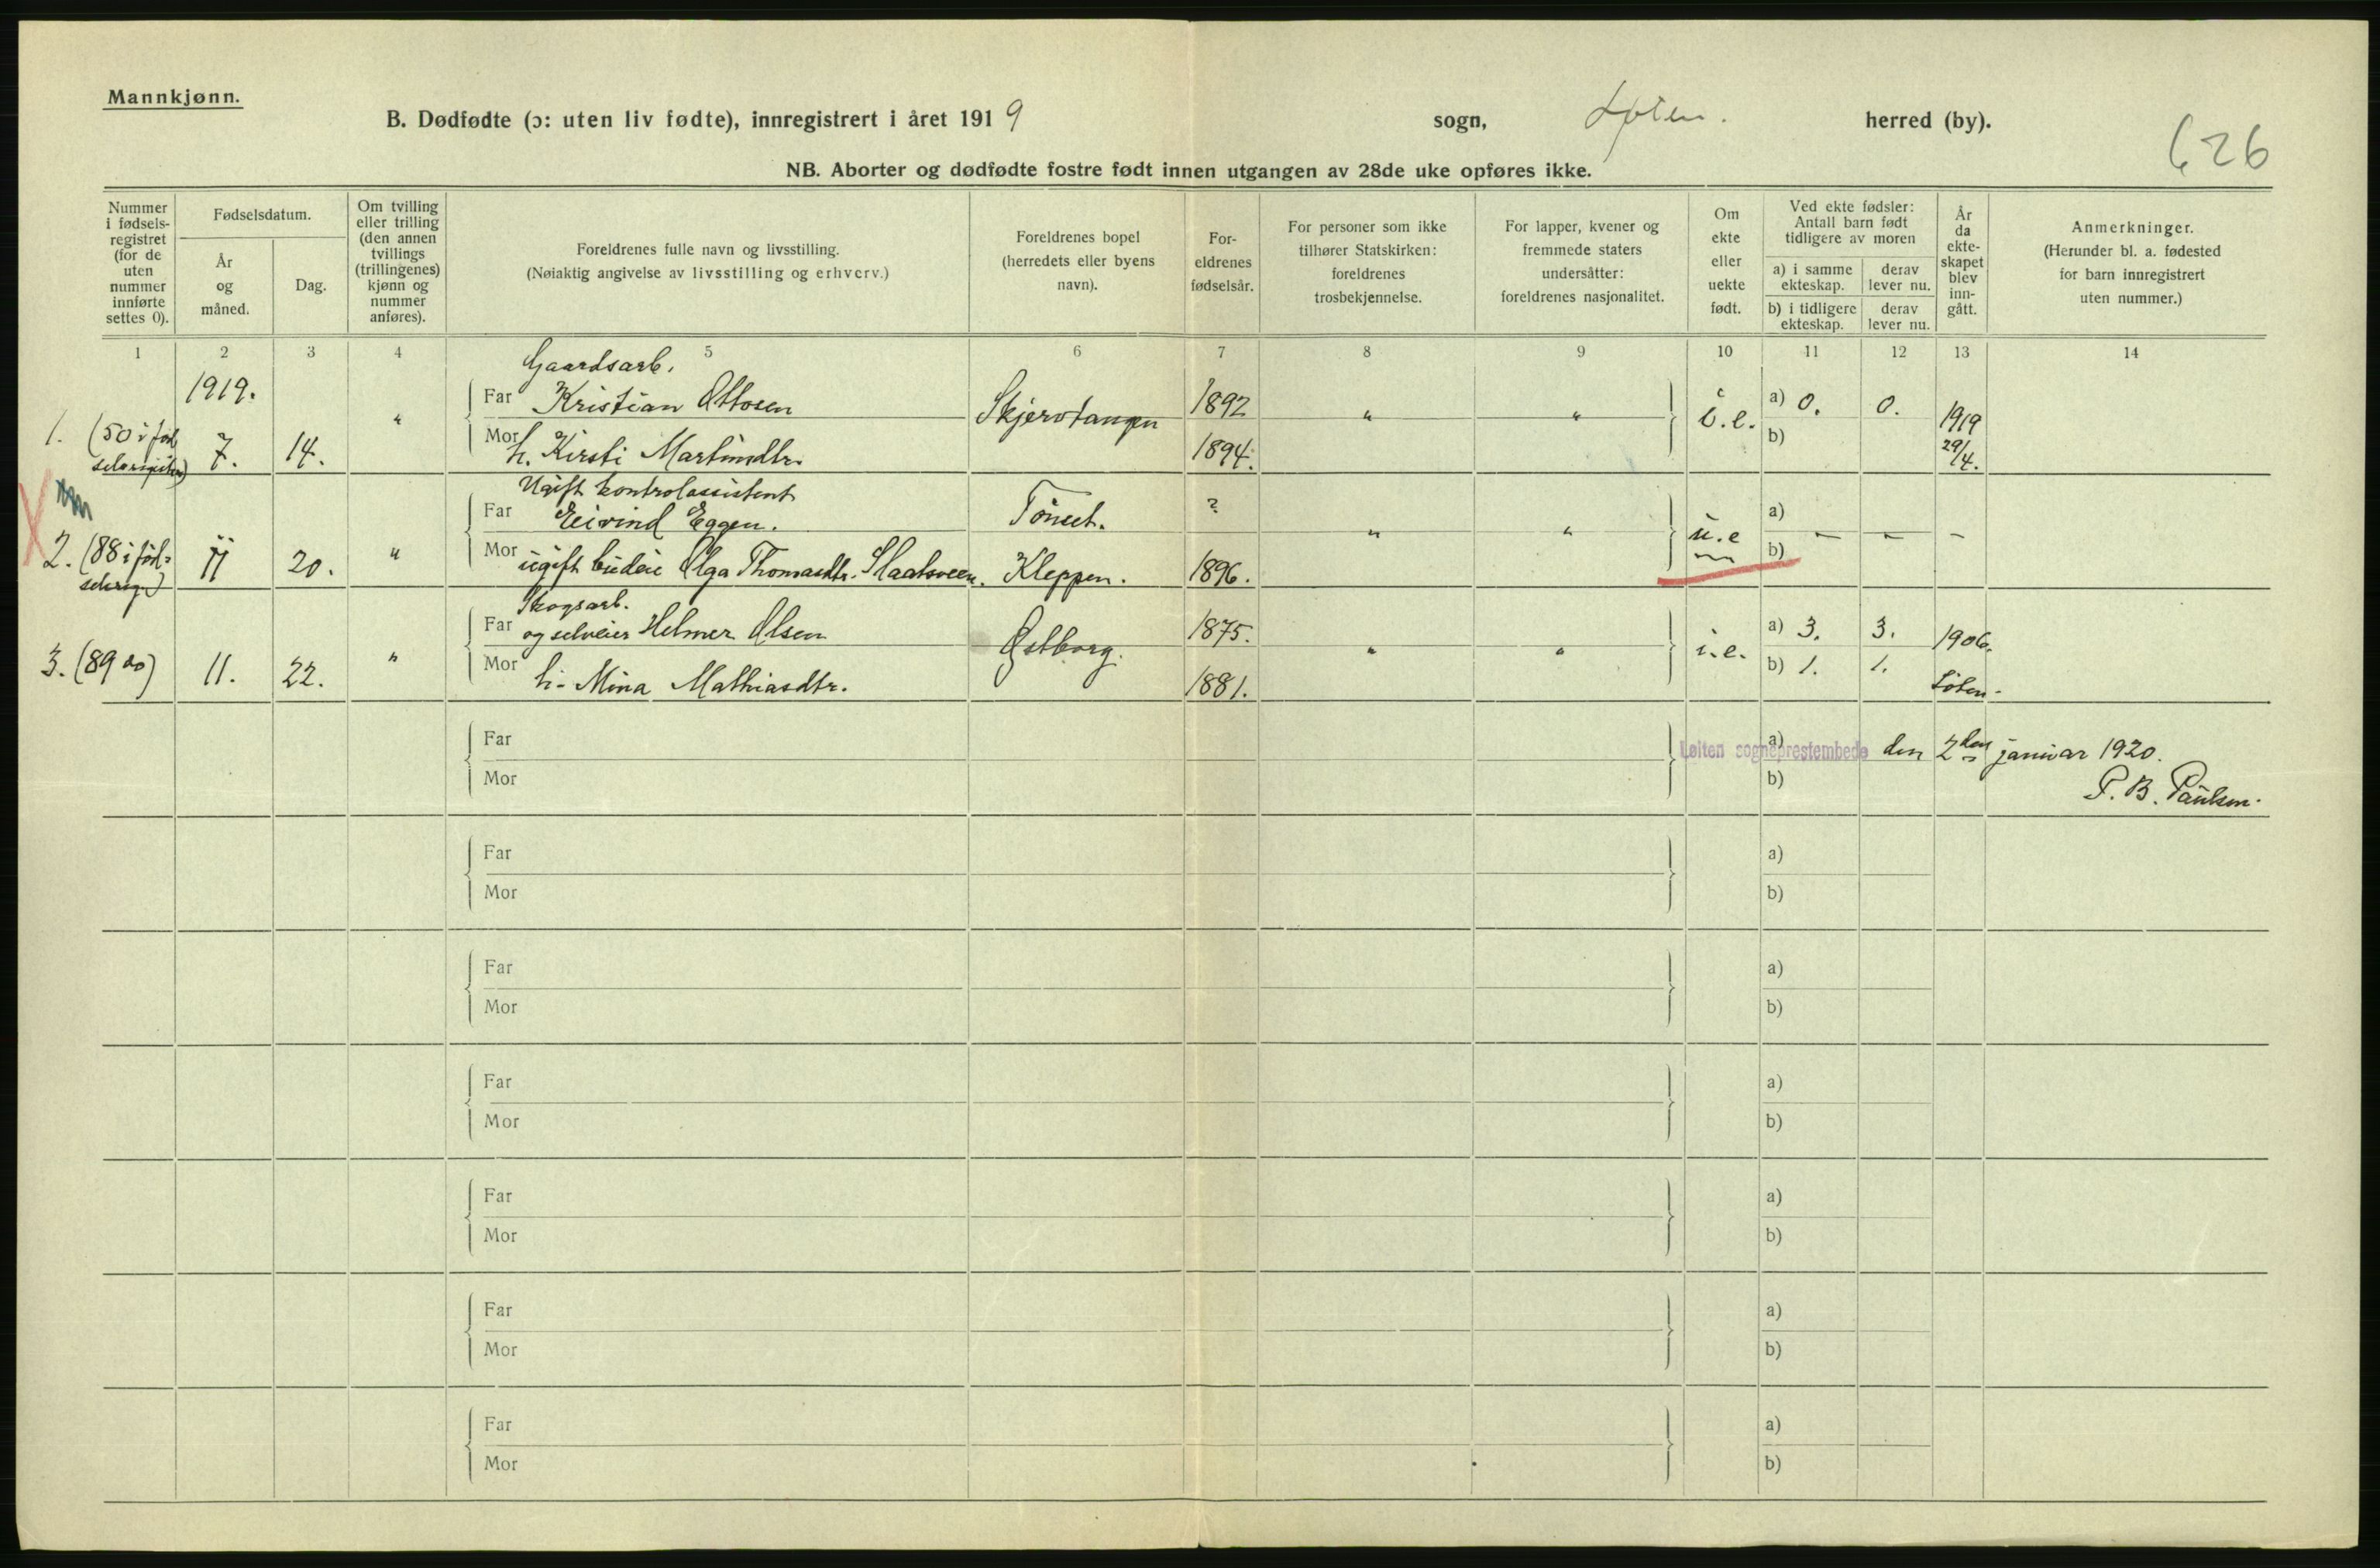 Mannkjønn.
B. Dødfødte (ɔ: uten liv fødte), innregistrert i året 1919 sogn, Løten. herred (by).
626
NB. Aborter og dødfødte fostre født innen utgangen av 28de uke opføres ikke.
Nummer i fødsels-registret (for de uten nummer innførte settes 0).
Fødselsdatum.
År og måned.
Dag.
Om tvilling eller trilling (den annen tvillings (trillingenes) kjønn og nummer anføres).
Foreldrenes fulle navn og livsstilling.
(Nøiaktig angivelse av livsstilling og erhverv.)
Foreldrenes bopel (herredets eller byens navn).
For-eldrenes fødselsår.
For personer som ikke tilhører Statskirken: foreldrenes trosbekjennelse.
For lapper, kvener og fremmede staters undersåtter: foreldrenes nasjonalitet.
Om ekte eller uekte født.
Ved ekte fødsler: Antall barn født tidligere av moren
a) i samme ekteskap. derav lever nu.
b) i tidligere ekteskap. derav lever nu.
År da ekte-skapet blev inn-gått.
Anmerkninger.
(Herunder bl. a. fødested for barn innregistrert uten nummer.)
1 2 3 4 5 6 7 8 9 10 11 12 13 14
Gaardsarb.
1919. Far Kristian Ottosen Skjervtangen 1892 " " i.e. a) 0. 0. 1919
1. (50 i fød 7. 14. " Mor h. Kirsti Martinsdtr. 1894. b) 29/4.
Ugift kontrolassistent
Far Eivind Eggen. Tönset. ? " " u.e a)
2. (88 i fød= 11 20. " Mor ugift budeie Olga Thomasdtr. Slaatsveen. Kleppen. 1896. b) — — —
Skogsarb.
Far og selveier Helmer Olsen Østborg. 1875. " " i.e. a) 3. 3. 1906.
3. (89 do) 11. 22. " Mor h. Mina Mathiasdtr. 1881. b) 1. 1. Løten.
Far a)
Løiten sogneprestembede den 2den januar 1920.
Mor b)
P. B. Paulsen.
Far a)
Mor b)
Far a)
Mor b)
Far a)
Mor b)
Far a)
Mor b)
Far a)
Mor b)
Far a)
Mor b)